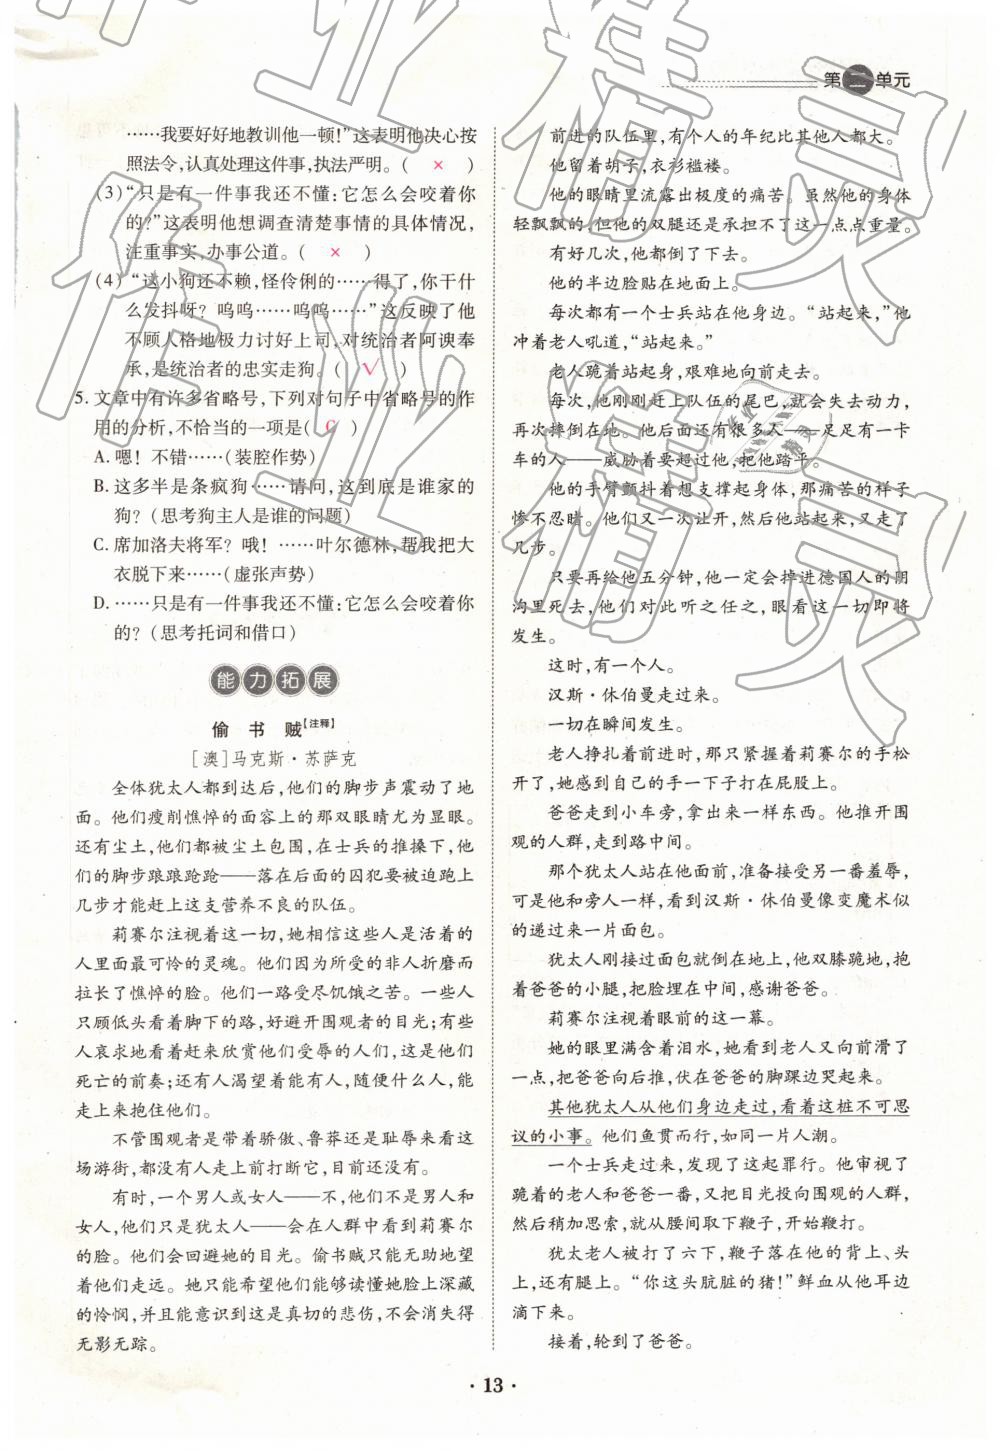 第二单元
……我要好好地教训他一顿!”这表明他决心按
照法令,认真处理这件事,执法严明。( × )
(3)“只是有一件事我还不懂:它怎么会咬着你
的?”这表明他想调查清楚事情的具体情况,
注重事实,办事公道。( × )
(4)“这小狗还不赖,怪伶俐的……得了,你干什
么发抖呀?呜呜……呜呜……”这反映了他
不顾人格地极力讨好上司,对统治者阿谀奉
承,是统治者的忠实走狗。( √ )
5. 文章中有许多省略号,下列对句子中省略号的作
用的分析,不恰当的一项是( C )
A. 嗯!不错……(装腔作势)
B. 这多半是条疯狗……请问,这到底是谁家的
狗?(思考狗主人是谁的问题)
C. 席加洛夫将军?哦!……叶尔德林,帮我把大
衣脱下来……(虚张声势)
D. ……只是有一件事我还不懂:它怎么会咬着你
的?(思考托词和借口)
能力拓展
偷书贼【注释】
[澳]马克斯·苏萨克
全体犹太人都到达后,他们的脚步声震动了地
面。他们瘦削憔悴的面容上的那双眼睛尤为显眼。
还有尘土,他们被尘土包围,在士兵的推搡下,他
们的脚步踉踉跄跄——落在后面的囚犯要被迫跑上
几步才能赶上这支营养不良的队伍。
莉赛尔注视着这一切,她相信这些人是活着的
人里面最可怜的灵魂。他们因为所受的非人折磨而
拉长了憔悴的脸。他们一路受尽饥饿之苦。一些人
只顾低头看着脚下的路,好避开围观者的目光;有些
人哀求地看着赶来欣赏他们受辱的人们,这是他们
死亡的前奏;还有人渴望着能有人,随便什么人,能
走上来抱住他们。
不管围观者是带着骄傲、鲁莽还是耻辱来看这
场游街,都没有走上前打断它,暂时还没有。
有时,一个男人或女人——不,他们不是男人和
女人,他们只是犹太人——会在人群中看到莉赛尔
的脸。他们会回避她的目光。偷书贼只能无助地望
着他们走远。她只能希望他们能够读懂她脸上深藏
的怜悯,并且能意识到这是真切的悲伤,不会消失得
无影无踪。
前进的队伍里,有个人的年纪比其他人都大。
他留着胡子,衣衫褴褛。
他的眼睛里流露出极度的痛苦。虽然他的身体
轻飘飘的,但他的双腿还是承担不了这一点点重量。
有好几次,他都倒了下去。
他的半边脸贴在地面上。
每次都有一个士兵站在他身边。“站起来,”他
冲着老人吼道,“站起来。”
老人跪着站起身,艰难地向前走去。
每次,他刚刚赶上队伍的尾巴,就会失去动力,
再次摔倒在地。他后面还有很多人——足足有一卡
车的人——威胁着要超过他,把他踏平。
他的手臂颤抖着想支撑起身体,那痛苦的样子
惨不忍睹。他们又一次让开,然后他站起来,又走了
几步。
只要再给他五分钟,他一定会掉进德国人的阴
沟里死去,他们对此听之任之,眼看这一切即将
发生。
这时,有一个人。
汉斯·休伯曼走过来。
一切在瞬间发生。
老人挣扎着前进时,那只紧握着莉赛尔的手松
开了,她感到自己的手一下子打在屁股上。
爸爸走到小车旁,拿出来一样东西。他推开围
观的人群,走到路中间。
那个犹太人站在他面前,准备接受另一番羞辱,
可是他和旁人一样,看到汉斯·休伯曼像变魔术似
的递过来一片面包。
犹太人刚接过面包就倒在地上,他双膝跪地,抱
着爸爸的小腿,把脸埋在中间,感谢爸爸。
莉赛尔注视着眼前的这一幕。
她的眼里满含着泪水,她看到老人又向前滑了
一点,把爸爸向后推,伏在爸爸的脚踝边哭起来。
其他犹太人从他们身边走过,看着这桩不可思
议的小事。他们鱼贯而行,如同一片人潮。
一个士兵走过来,发现了这起罪行。他审视了
跪着的老人和爸爸一番,又把目光投向围观的人群,
然后稍加思索,就从腰间取下鞭子,开始鞭打。
犹太老人被打了六下,鞭子落在他的背上、头
上,还有腿上。“你这头肮脏的猪!”鲜血从他耳边
滴下来。
接着,轮到了爸爸。
· 13 ·
作业精灵
作业精灵